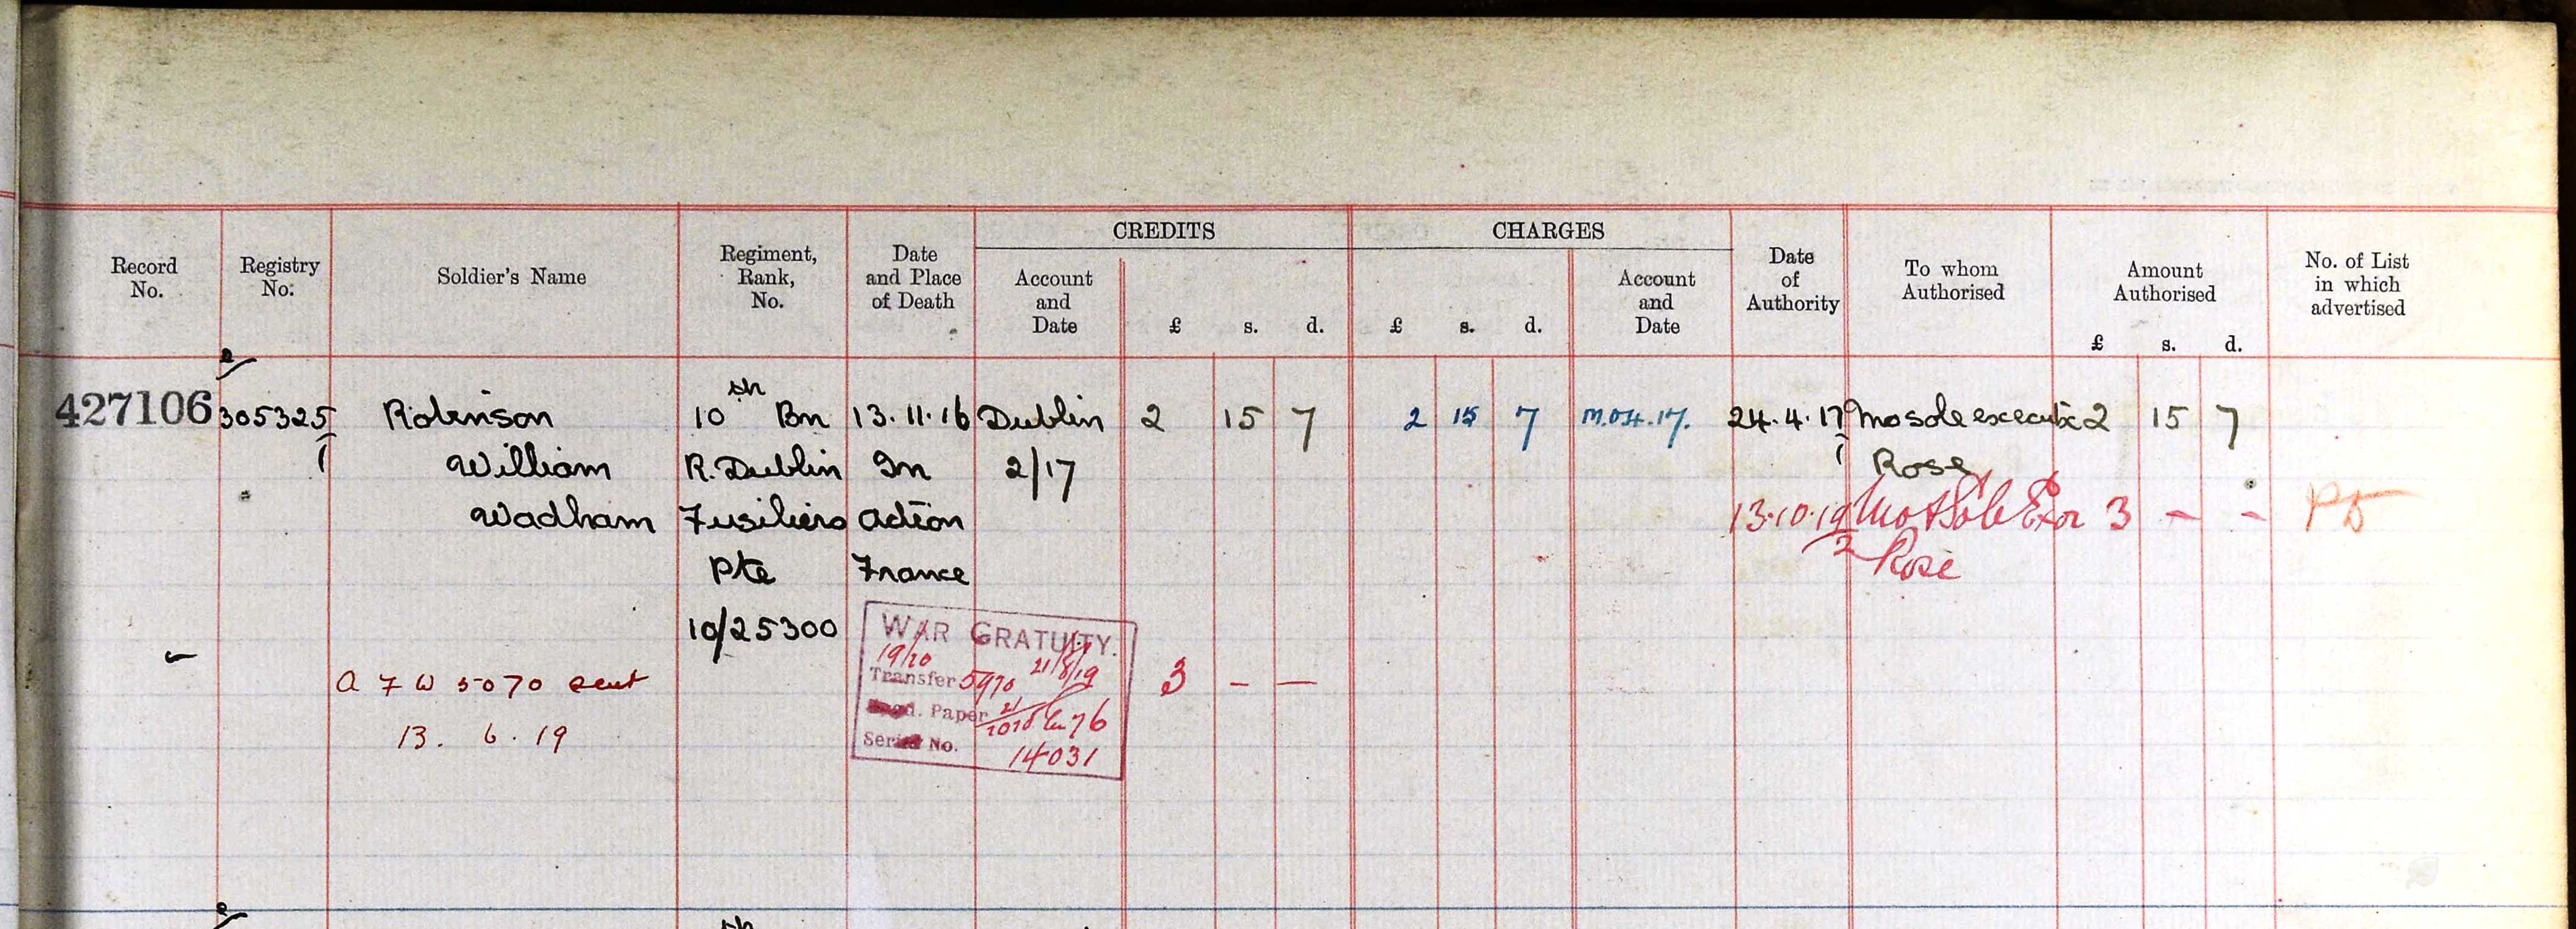 CREDITS CHARGES
Record No. Registry No. Soldier's Name Regiment, Rank, No. Date and Place of Death Account and Date £ s. d. £ s. d. Account and Date Date of Authority To whom Authorised Amount Authorised £ s. d. No. of List in which advertised
427106 305325 Robinson 10th Bn 13.11.16 Dublin 2 15 7 2 15 7 24.4.17 Mo sole executx 2 15 7
William R. Dublin In 2/17 Rose
Wadham Fusiliers Action 13.10.19 Mo & Sole Exor 3 - -
Pte France Rose
10/25300
WAR GRATUITY.
19/20 21/8/19
A F W 5070 sent Transfer 5970 3 - -
Paper
13. 6. 19 No.
14031